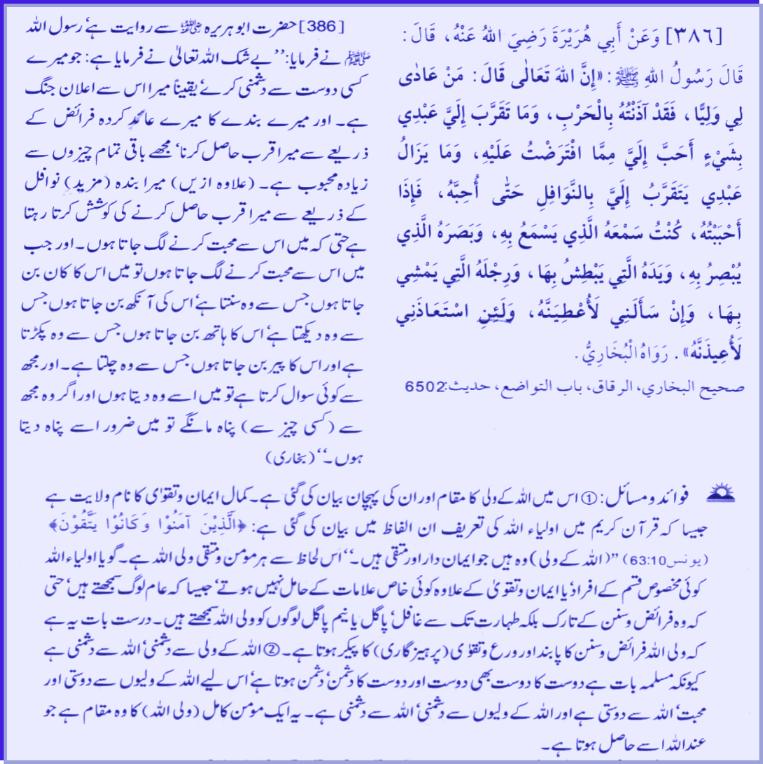 [٣٨٦] وَعَنْ أَبِي هُرَيْرَةَ رَضِيَ اللهُ عَنْهُ، قَالَ:
قَالَ رَسُولُ اللهِ ﷺ: «إِنَّ اللهَ تَعَالٰى قَالَ: مَنْ عَادٰى
لِي وَلِيًّا، فَقَدْ آذَنْتُهُ بِالْحَرْبِ، وَمَا تَقَرَّبَ إِلَيَّ عَبْدِي
بِشَيْءٍ أَحَبَّ إِلَيَّ مِمَّا افْتَرَضْتُ عَلَيْهِ، وَمَا يَزَالُ
عَبْدِي يَتَقَرَّبُ إِلَيَّ بِالنَّوَافِلِ حَتّٰى أُحِبَّهُ، فَإِذَا
أَحْبَبْتُهُ، كُنْتُ سَمْعَهُ الَّذِي يَسْمَعُ بِهِ، وَبَصَرَهُ الَّذِي
يُبْصِرُ بِهِ، وَيَدَهُ الَّتِي يَبْطِشُ بِهَا، وَرِجْلَهُ الَّتِي يَمْشِي
بِهَا، وَإِنْ سَأَلَنِي لَأُعْطِيَنَّهُ، وَلَئِنِ اسْتَعَاذَنِي
لَأُعِيذَنَّهُ». رَوَاهُ الْبُخَارِيُّ.
صحيح البخاري، الرقاق، باب التواضع، حديث:6502
[386] حضرت ابو ہریرہ ﷜ سے روایت ہے، رسول اللہ
ﷺ نے فرمایا: ’’بے شک اللہ تعالیٰ نے فرمایا ہے: جو میرے
کسی دوست سے دشمنی کرے، یقیناً میرا اس سے اعلان جنگ
ہے۔ اور میرے بندے کا میرے عائد کردہ فرائض کے
ذریعے سے میرا قرب حاصل کرنا، مجھے باقی تمام چیزوں سے
زیادہ محبوب ہے۔ (علاوہ ازیں) میرا بندہ (مزید) نوافل
کے ذریعے سے میرا قرب حاصل کرنے کی کوشش کرتا رہتا
ہے حتی کہ میں اس سے محبت کرنے لگ جاتا ہوں۔ اور جب
میں اس سے محبت کرنے لگ جاتا ہوں تو میں اس کا کان بن
جاتا ہوں جس سے وہ سنتا ہے، اس کی آنکھ بن جاتا ہوں جس
سے وہ دیکھتا ہے، اس کا ہاتھ بن جاتا ہوں جس سے وہ پکڑتا
ہے اور اس کا پیر بن جاتا ہوں جس سے وہ چلتا ہے۔ اور مجھ
سے کوئی سوال کرتا ہے تو میں اسے وہ دیتا ہوں اور اگر وہ مجھ
سے (کسی چیز سے) پناہ مانگے تو میں ضرور اسے پناہ دیتا
ہوں۔‘‘ (بخاری)
فوائد و مسائل: ① اس میں اللہ کے ولی کا مقام اور ان کی پہچان بیان کی گئی ہے۔ کمال ایمان و تقوٰی کا نام ولایت ہے
جیسا کہ قرآن کریم میں اولیاء اللہ کی تعریف ان الفاظ میں بیان کی گئی ہے: ﴿الَّذِيْنَ آمَنُوْا وَكَانُوْا يَتَّقُوْنَ﴾
(یونس 63:10) ’’(اللہ کے ولی) وہ ہیں جو ایمان دار اور متقی ہیں۔‘‘ اس لحاظ سے ہر مومن و متقی ولی اللہ ہے۔ گویا اولیاء اللہ
کوئی مخصوص قسم کے افراد، یا ایمان و تقویٰ کے علاوہ کوئی خاص علامات کے حامل نہیں ہوتے، جیسا کہ عام لوگ سمجھتے ہیں، حتی
کہ وہ فرائض و سنن کے تارک بلکہ طہارت تک سے غافل، پاگل یا نیم پاگل لوگوں کو ولی اللہ سمجھتے ہیں۔ درست بات یہ ہے
کہ ولی اللہ فرائض و سنن کا پابند اور ورع و تقوٰی (پرہیزگاری) کا پیکر ہوتا ہے۔ ② اللہ کے ولی سے دشمنی، اللہ سے دشمنی ہے
کیونکہ مسلمہ بات ہے دوست کا دوست بھی دوست اور دوست کا دشمن، دشمن ہوتا ہے، اس لیے اللہ کے ولیوں سے دوستی اور
محبت، اللہ سے دوستی ہے اور اللہ کے ولیوں سے دشمنی، اللہ سے دشمنی ہے۔ یہ ایک مومن کامل (ولی اللہ) کا وہ مقام ہے جو
عند اللہ اسے حاصل ہوتا ہے۔